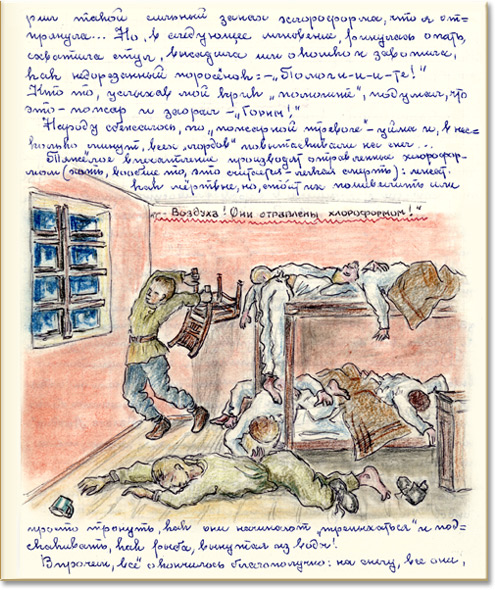 рил такой сильный запах хлороформа, что я от-
прянула... Но, в следующее мгновение, ринулась опять,
схватила стул, высадила им окошко и завопила,
как недорезанный поросёнок: - „Помоги-и-и-те!"
Кто то, услыхав мой вопль „помогите", подумал, что
это - пожар и заорал - „Горим!"
Народу сбежалось, по „пожарной тревоге" - уйма и, в нес-
колько минут, всех повытаскивали на снег...
Тяжёлое впечатление производят отравленные хлорофор-
мом (хоть, вообще то, это считается - легкая смерть): лежат
как мёртвые, но, стоит их пошевелить или
„Воздуха! Они отравлены хлороформом!"
просто тронуть, как они начинают „трепыхаться" и под-
скакивать, как рыба, вынутая из воды!
Впрочем, всё окончилось благополучно: на снегу, все они,